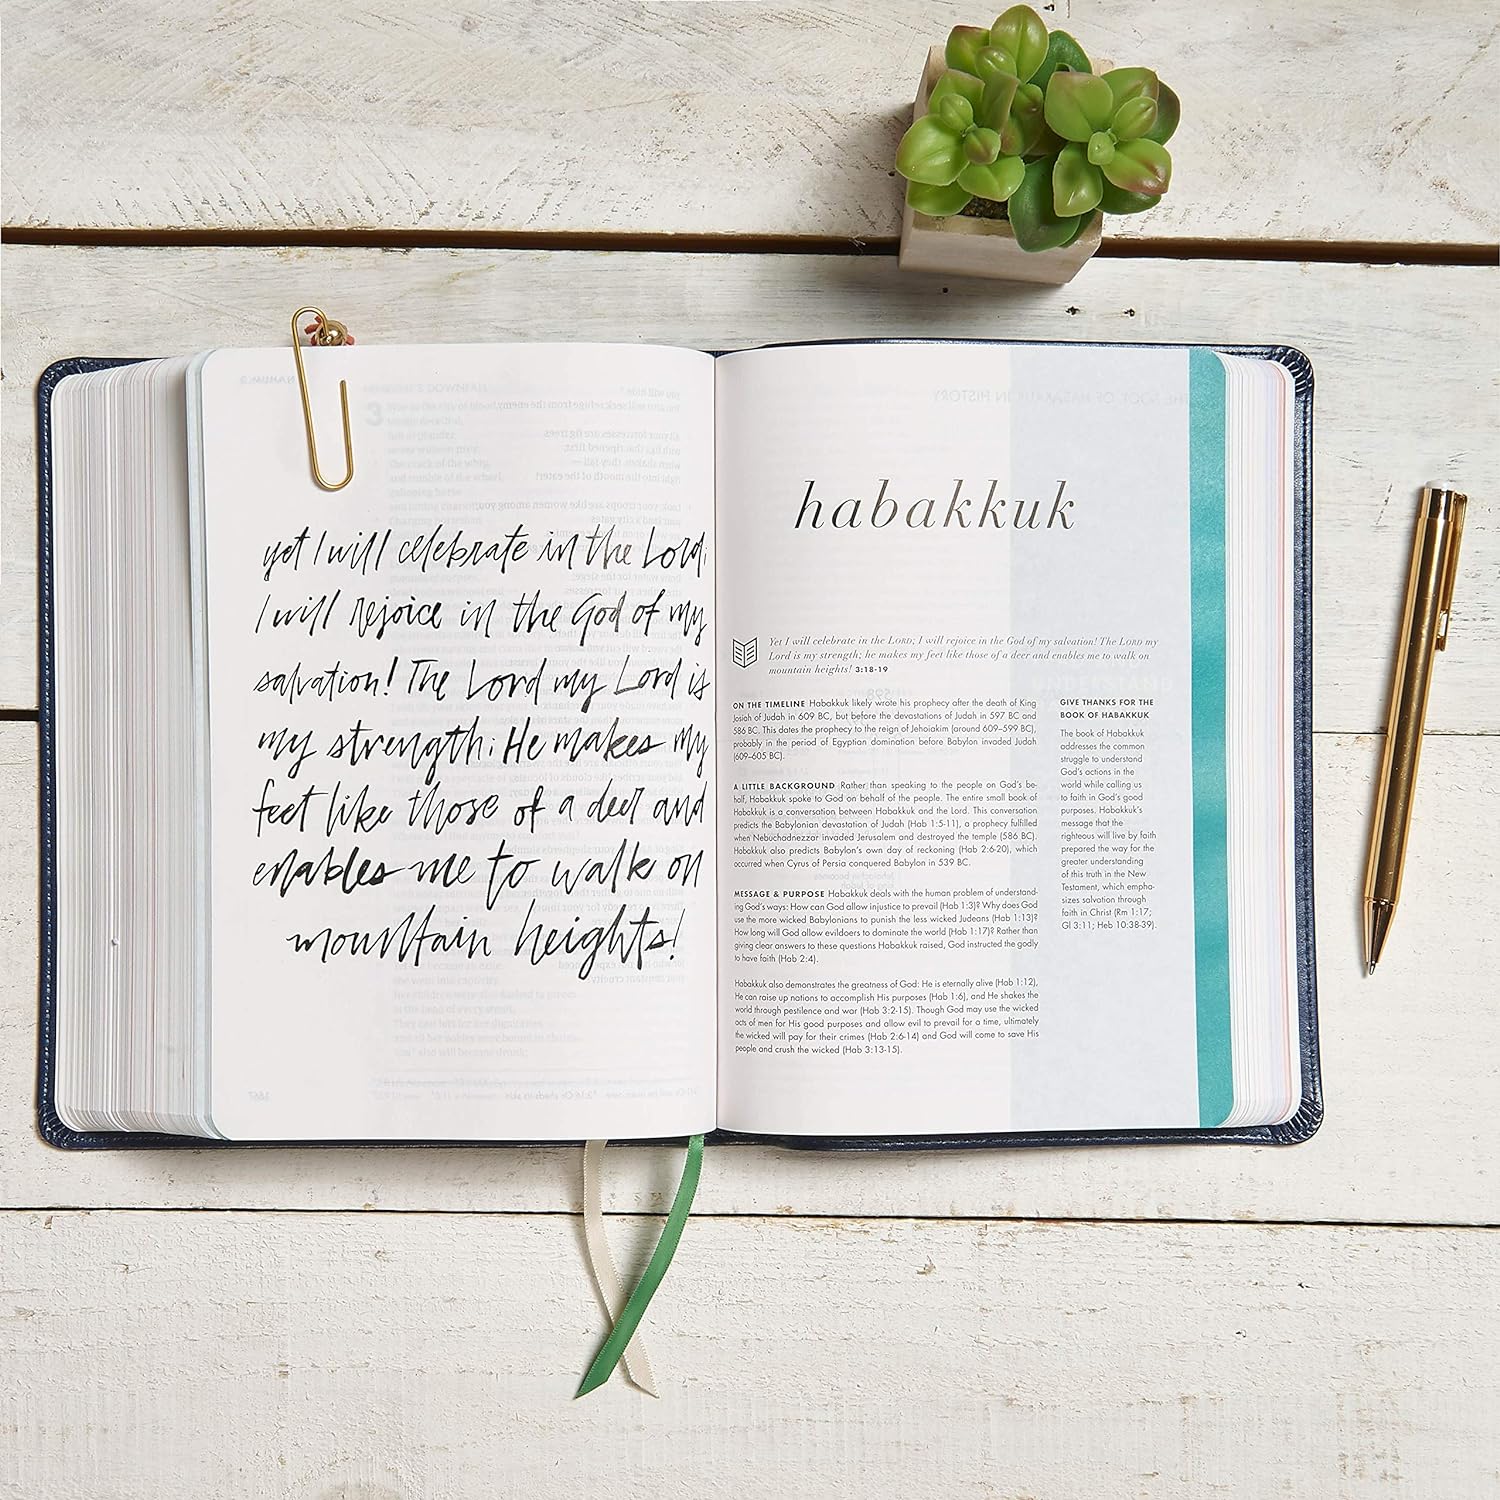 yet I will celebrate in the Lord;
I will rejoice in the God of my
salvation! The Lord my Lord is
my strength; He makes my
feet like those of a deer and
enables me to walk on
mountain heights!
habakkuk
Yet I will celebrate in the LORD; I will rejoice in the God of my salvation! The LORD my
Lord is my strength; he makes my feet like those of a deer and enables me to walk on
mountain heights! 3:18-19
ON THE TIMELINE Habakkuk likely wrote his prophecy after the death of King
Josiah of Judah in 609 BC, but before the devastations of Judah in 597 BC and
586 BC. This dates the prophecy to the reign of Jehoiakim (around 609–599 BC),
probably in the period of Egyptian domination before Babylon invaded Judah
(609–605 BC).
A LITTLE BACKGROUND Rather than speaking to the people on God's be-
half, Habakkuk spoke to God on behalf of the people. The entire small book of
Habakkuk is a conversation between Habakkuk and the Lord. This conversation
predicts the Babylonian devastation of Judah (Hab 1:5-11), a prophecy fulfilled
when Nebuchadnezzar invaded Jerusalem and destroyed the temple (586 BC).
Habakkuk also predicts Babylon's own day of reckoning (Hab 2:6-20), which
occurred when Cyrus of Persia conquered Babylon in 539 BC.
MESSAGE & PURPOSE Habakkuk deals with the human problem of understand-
ing God's ways: How can God allow injustice to prevail (Hab 1:3)? Why does God
use the more wicked Babylonians to punish the less wicked Judeans (Hab 1:13)?
How long will God allow evildoers to dominate the world (Hab 1:17)? Rather than
giving clear answers to these questions Habakkuk raised, God instructed the godly
to have faith (Hab 2:4).
Habakkuk also demonstrates the greatness of God: He is eternally alive (Hab 1:12),
He can raise up nations to accomplish His purposes (Hab 1:6), and He shakes the
world through pestilence and war (Hab 3:2-15). Though God may use the wicked
acts of men for His good purposes and allow evil to prevail for a time, ultimately
the wicked will pay for their crimes (Hab 2:6-14) and God will come to save His
people and crush the wicked (Hab 3:13-15).
GIVE THANKS FOR THE
BOOK OF HABAKKUK
The book of Habakkuk
addresses the common
struggle to understand
God's actions in the
world while calling us
to faith in God's good
purposes. Habakkuk's
message that the
righteous will live by faith
prepared the way for the
greater understanding
of this truth in the New
Testament, which empha-
sizes salvation through
faith in Christ (Rm 1:17;
Gl 3:11; Heb 10:38-39).